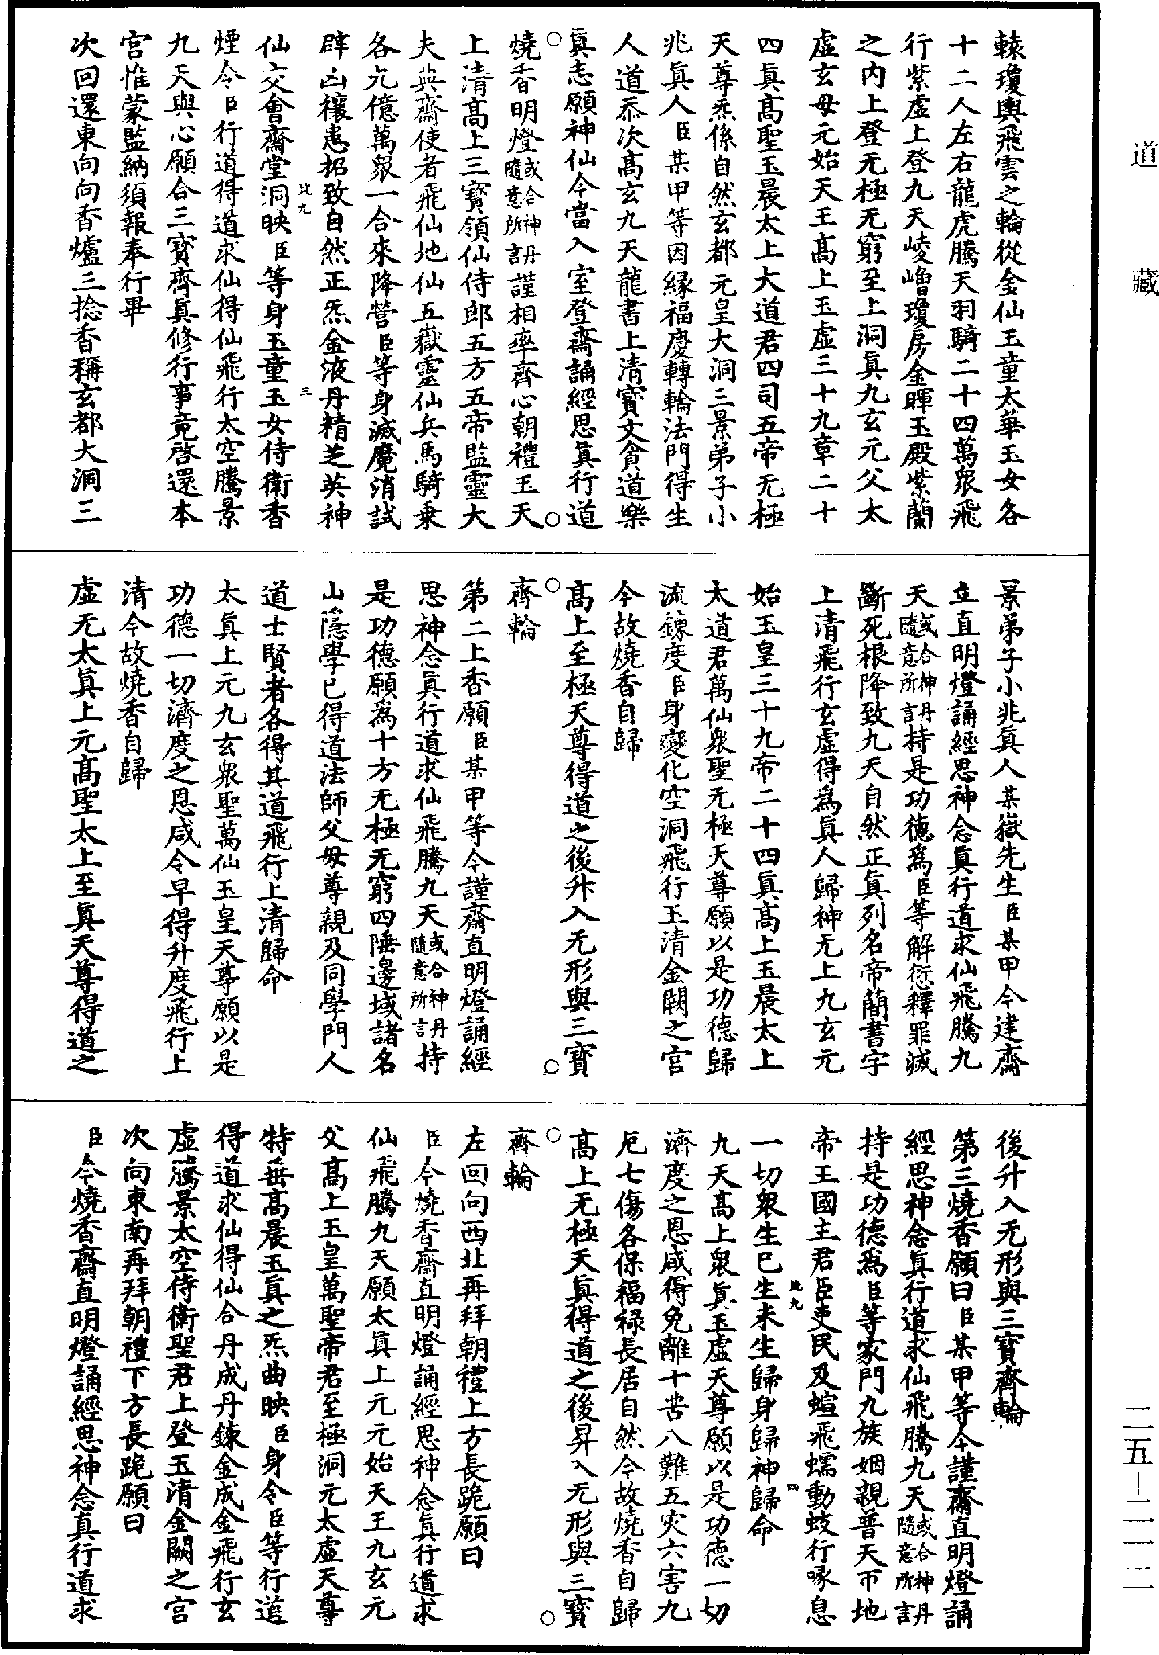 道藏
轅瓊輿飛雲之輪從金仙玉童太華玉女各
十二人左右龍虎騰天羽騎二十四萬衆飛
行紫虛上登九天崚嶒瓊房金暉玉殿紫蘭
之内上登无極无窮至上洞真九玄元父太
虛玄母元始天王高上玉虛三十九章二十
四真高聖玉晨太上大道君四司五帝无極
天尊炁係自然玄都元皇大洞三景弟子小
兆真人臣某甲等因緣福慶轉輪法門得生
人道忝次高玄九天龍書上清寶文貪道樂
真志願神仙今當入室登齋誦經思真行道
燒香明燈或合神丹隨意所言謹相率齊心朝禮玉天
上清高上三寶領仙侍郎五方五帝監靈大
夫典齋使者飛仙地仙五嶽靈仙兵馬騎乘
各九億萬衆一合來降營臣等身滅魔消試
辟凶穰恚招致自然正炁金液丹精芝英神
仙交會齋堂洞映臣等身玉童玉女侍衛香
煙令臣行道得道求仙得仙飛行太空騰景
九天與心願合三寶齊真修行事竟啓還本
宮惟蒙監納須報奉行畢
次回還東向向香爐三捻香稱玄都大洞三
景弟子小兆真人某嶽先生臣某甲今建齋
立直明燈誦經思神念真行道求仙飛騰九
天或合神丹隨意所言持是功德爲臣等解愆釋罪滅
斷死根降致九天自然正真列名帝簡書字
上清飛行玄虛得爲真人歸神无上九玄元
始玉皇三十九帝二十四真高上玉晨太上
太道君萬仙衆聖无極天尊願以是功德歸
流鍊度臣身變化空洞飛行玉清金闕之宮
今故燒香自歸
高上至極天尊得道之後升入无形與三寶
齊輪
第二上香願臣某甲等今謹齋直明燈誦經
思神念真行道求仙飛騰九天或合神丹隨意所言持
是功德願爲十方无極无窮四陲邊域諸名
山隱學已得道法師父母尊親及同學門人
道士賢者各得其道飛行上清歸命
太真上元九玄衆聖萬仙玉皇天尊願以是
功德一切濟度之恩咸令早得升度飛行上
清今故燒香自歸
虛无太真上元高聖太上至真天尊得道之
後升入无形與三寶齊輪
第三燒香願曰臣某甲等今謹齋直明燈誦
經思神念真行道求仙飛騰九天或合神丹隨意所言
持是功德爲臣等家門九族姻親普天帀地
帝王國主君臣吏民及蝖飛蠕動蚑行喙息
一切衆生已生未生歸身歸神歸命
九天高上衆真玉虛天尊願以是功德一切
濟度之恩咸得免離十苦八難五灾六害九
厄七傷各保福祿長居自然今故燒香自歸
高上无極天真得道之後昇入无形與三寶
齊輪
左回向西北再拜朝禮上方長跪願曰
臣今燒香齋直明燈誦經思神念真行道求
仙飛騰九天願太真上元元始天王九玄元
父高上玉皇萬聖帝君至極洞元太虛天尊
特垂高晨玉真之炁曲映臣身令臣等行道
得道求仙得仙合丹成丹鍊金成金飛行玄
虛騰景太空侍衛聖君上登玉清金闕之宮
次向東南再拜朝禮下方長跪願曰
臣今燒香齋直明燈誦經思神念真行道求
二五-二一二